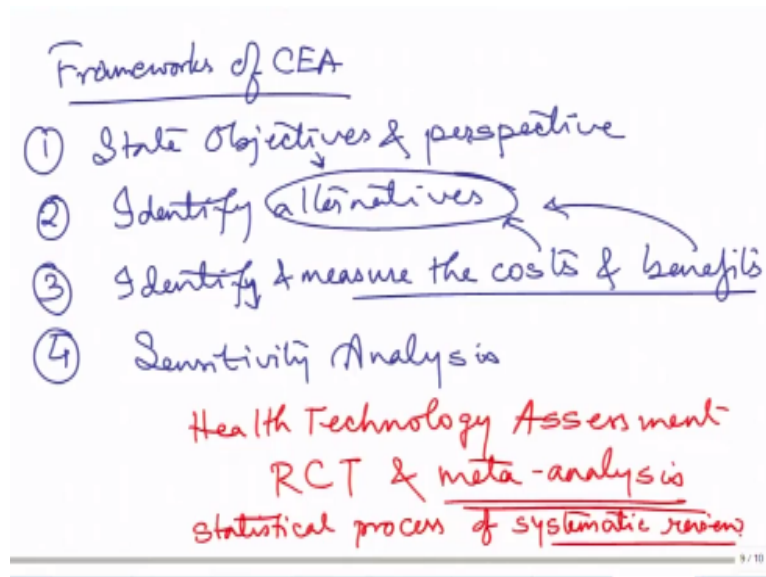 Frameworks of CEA
① State Objectives & perspective
② Identify alternatives
③ Identify & measure the costs & benefits
④ Sensitivity Analysis
Health Technology Assessment
RCT & meta-analysis
statistical process of systematic review
9 / 10